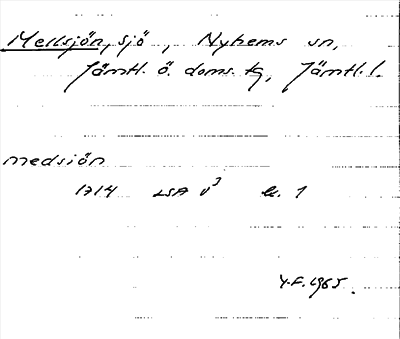 Mellsjön, sjö, Nyhems sn,
Jämtl. ö. doms. tg, Jämtl. l.
medsiön
1714 LSA V³ bl. 1
Y.F. 1965.